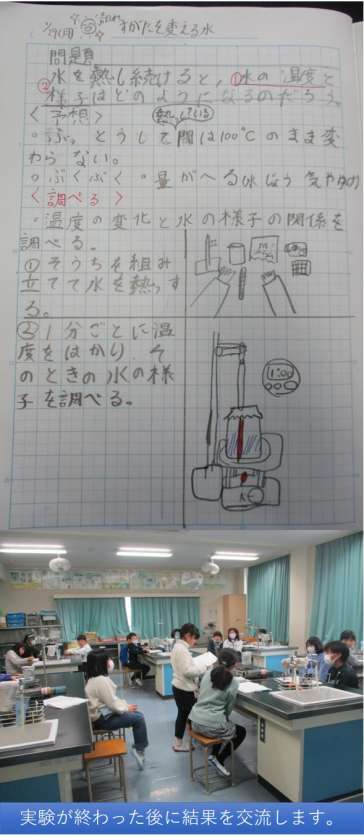 すがたを変える水
問題
水を熱し続けると、①水の温度と
②様子はどのようになるのだろう。
<予想> 熱している
・ふっとうして間は100℃のまま変
わらない。
・ぶくぶく ・量がへる
<調べる>
・温度の変化と水の様子の関係を
調べる。
①そうちを組み
立てて水を熱っす
る。
②1分ごとに温
度をはかり、そ
のときの水の様
子を調べる。
1:00
実験が終わった後に結果を交流します。